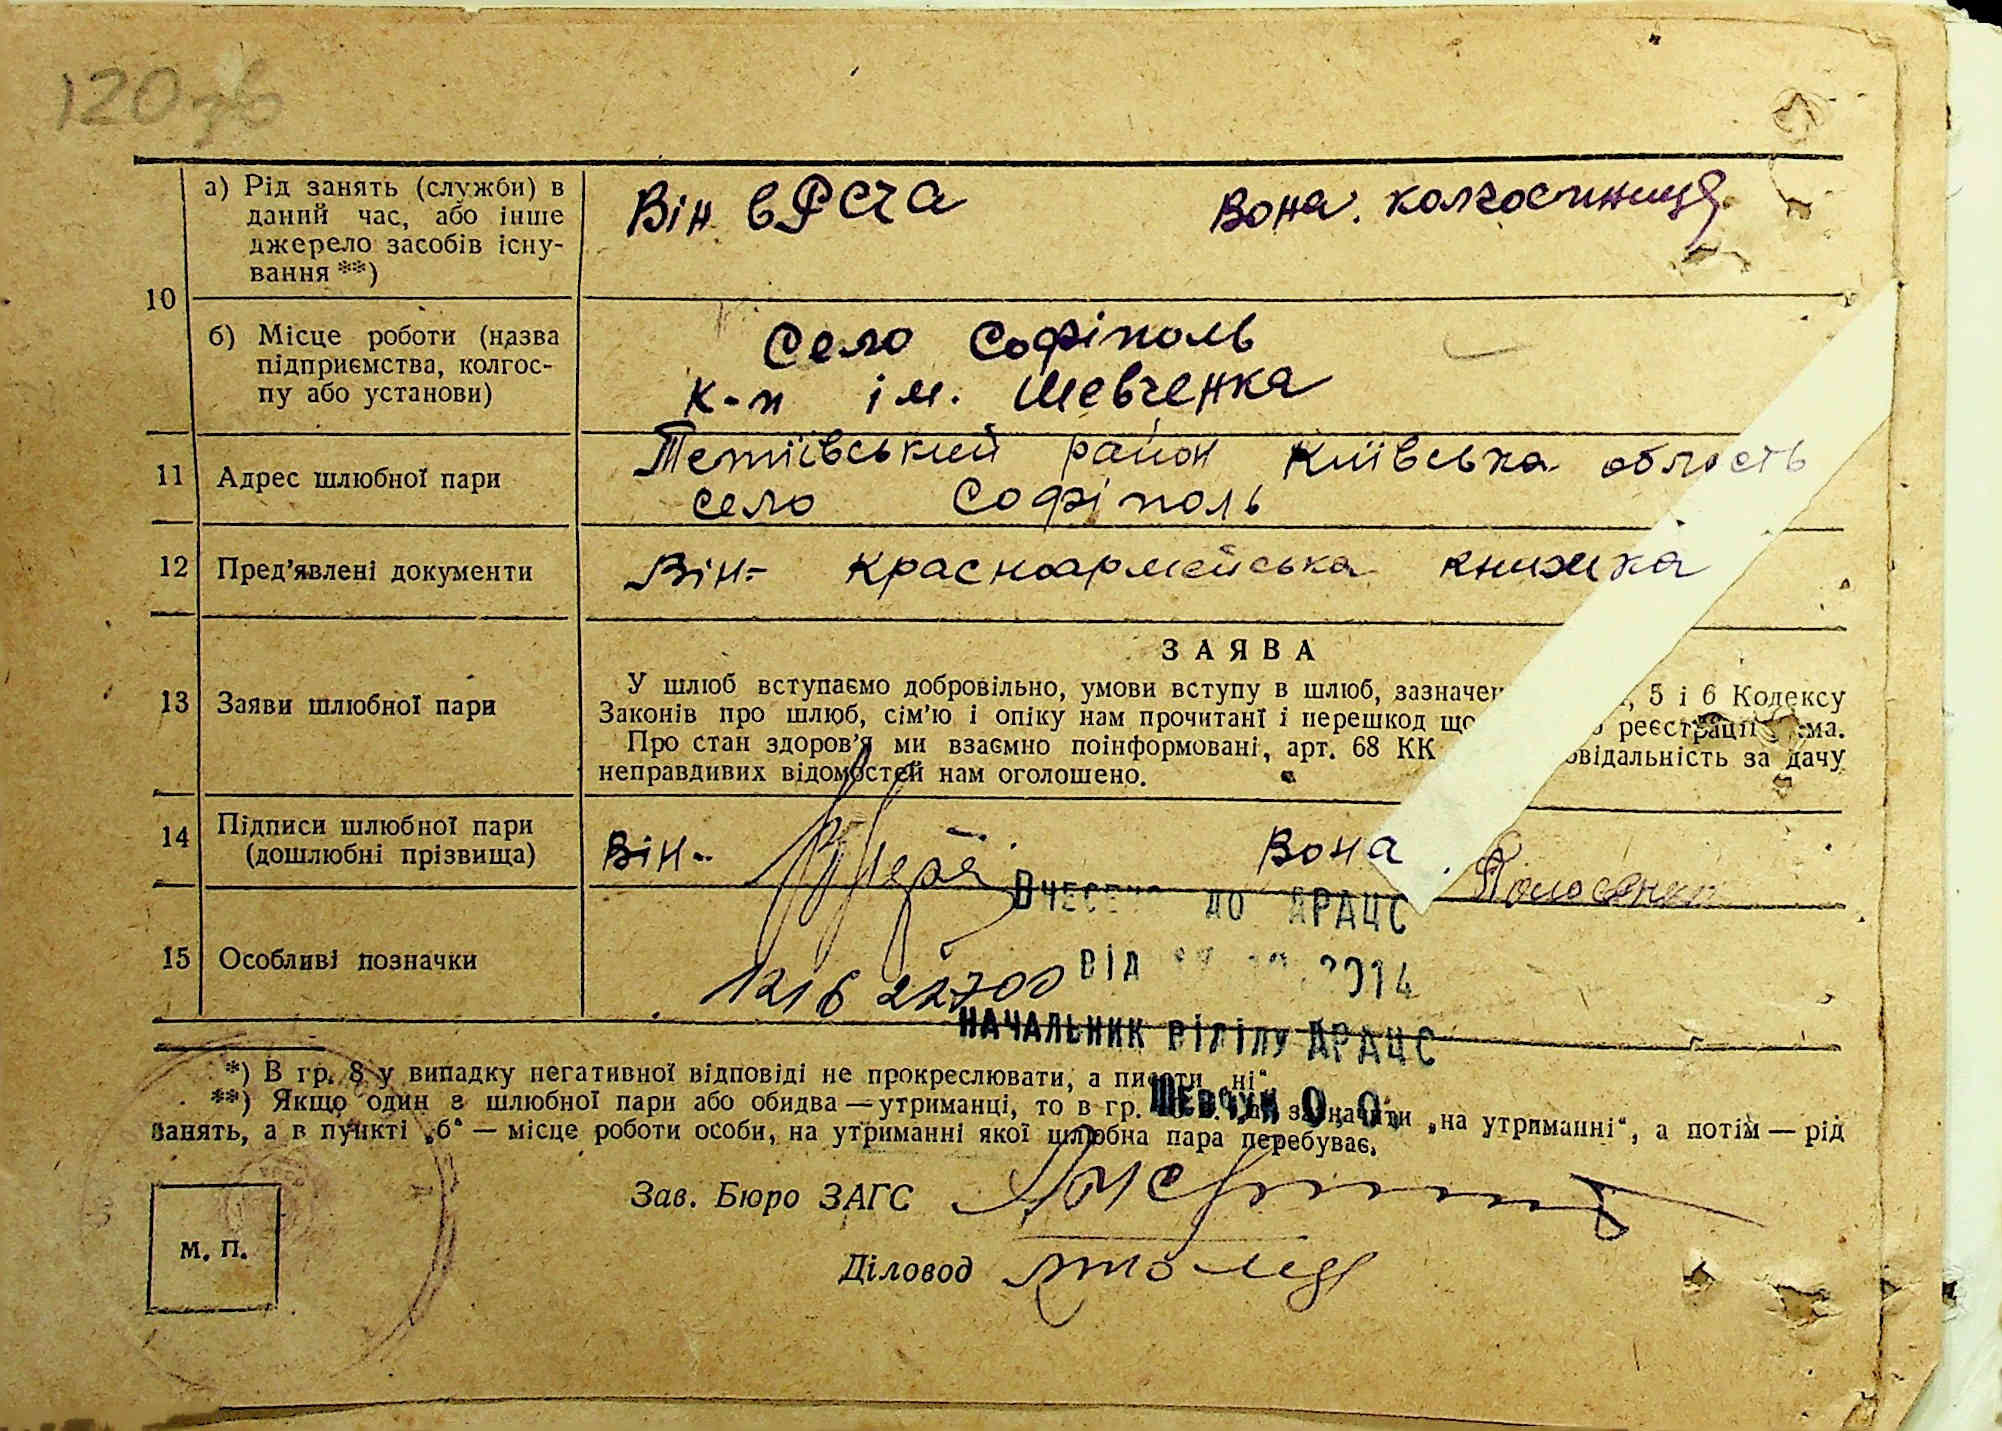 120 зв
а) Рід занять (служби) в
даний час, або інше
джерело засобів існу-
вання **)
Він в РСЧА Вона. колгоспниця
10
б) Місце роботи (назва
підприємства, колгос-
пу або установи)
Село Софіполь
к-п ім. Шевченка
11 Адрес шлюбної пари
Тетіївський район Київська область
село Софіполь
12 Пред'явлені документи
Він- Красноармейська книжка
13 Заяви шлюбної пари
ЗАЯВА
У шлюб вступаємо добровільно, умови вступу в шлюб, зазначен , 5 і 6 Кодексу
Законів про шлюб, сім'ю і опіку нам прочитані і перешкод що реєстрації ма.
Про стан здоров'я ми взаємно поінформовані, арт. 68 КК відальність за дачу
неправдивих відомостей нам оголошено.
14 Підписи шлюбної пари
(дошлюбні прізвища)
Він- Вона
ВНЕСЕНО ДО ДРАЦС
15 Особливі позначки
ВІД 2014
1216 22700
НАЧАЛЬНИК ВІДІЛУ ДРАЦС
*) В гр. 8 у випадку негативної відповіді не прокреслювати, а писати „ні“
ШЕВЧУК О. О.
**) Якщо один з шлюбної пари або обидва — утриманці, то в гр. зазначити „на утриманні“, а потім — рід
занять, а в пункті „б“ — місце роботи особи, на утриманні якої шлюбна пара перебуває.
Зав. Бюро ЗАГС
М. П.
Діловод